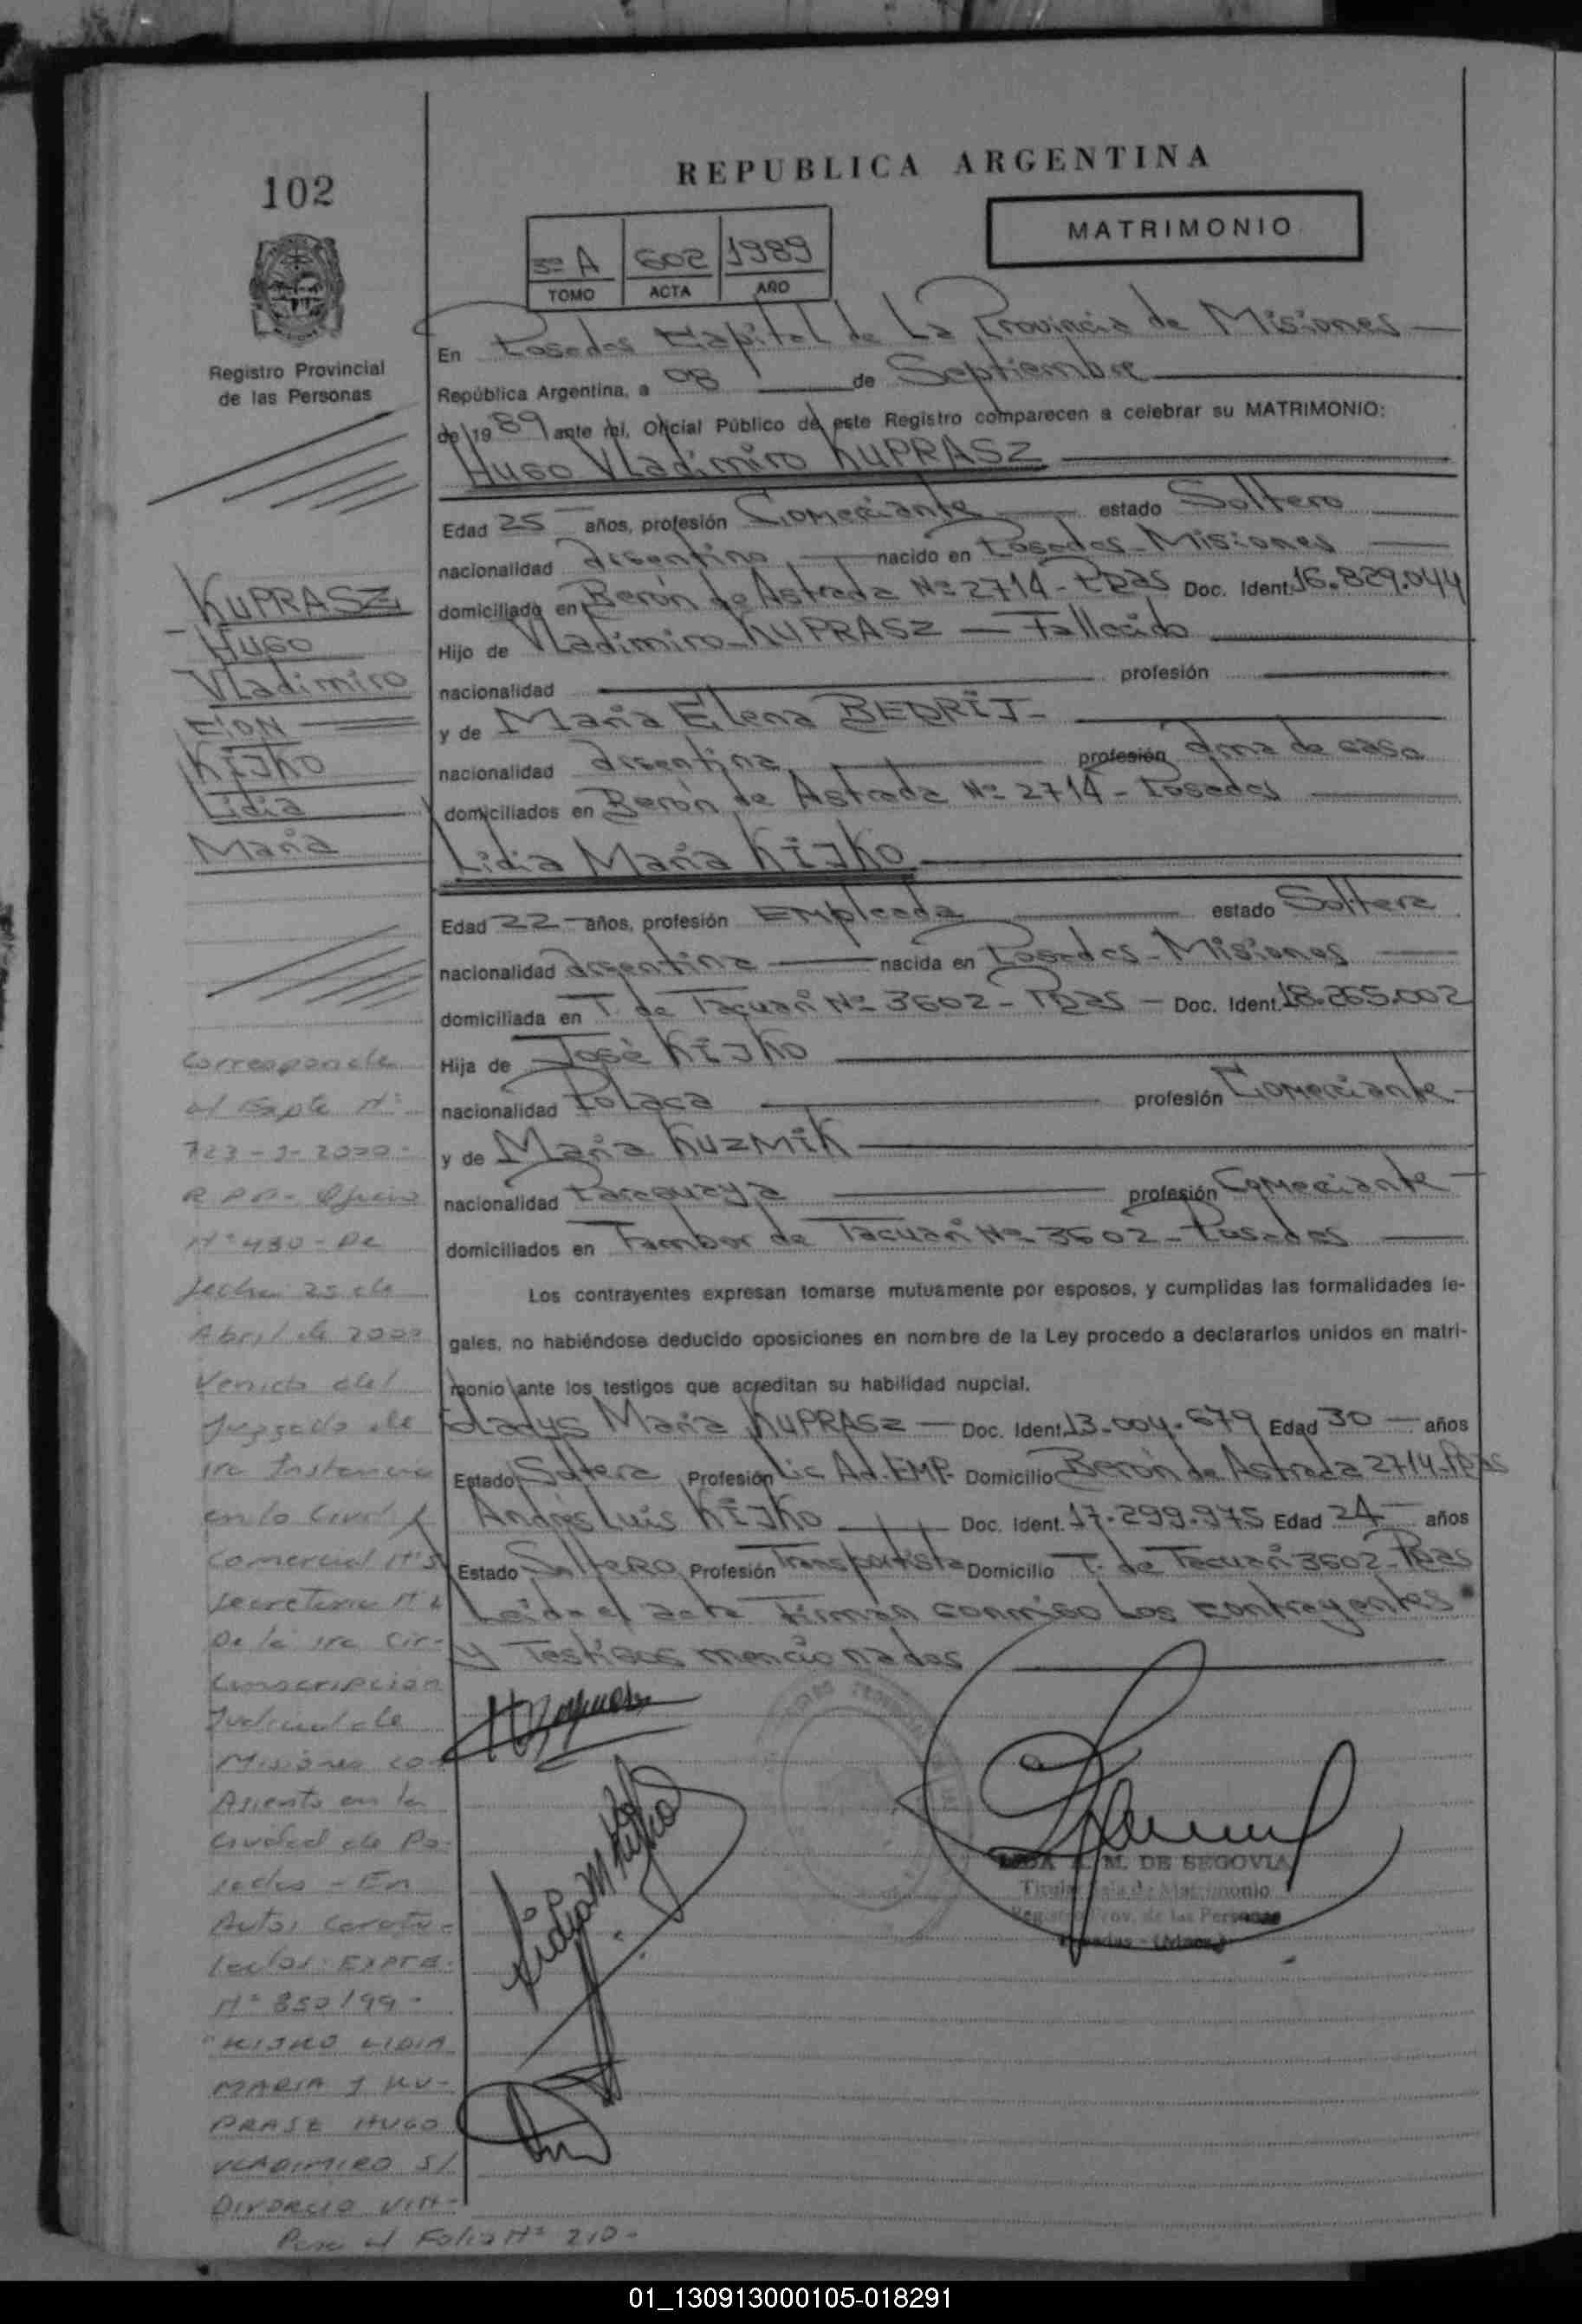 102
REPUBLICA ARGENTINA
MATRIMONIO
3º A 602 1989
TOMO ACTA AÑO
Registro Provincial
de las Personas
En Posadas Capital de La Provincia de Misiones
República Argentina, a 08 de Septiembre
de 1989 ante mí, Oficial Público de este Registro comparecen a celebrar su MATRIMONIO:
Hugo Vladimiro KUPRASZ
Edad 25 años, profesión Comerciante estado Soltero
nacionalidad Argentina nacido en Posadas - Misiones
domiciliado en Berón de Astrada Nº 2714 - Pdas Doc. Ident. 16.829.044
Hijo de Vladimiro KUPRASZ — Fallecido
nacionalidad profesión
y de María Elena BEDRIJ -
nacionalidad Argentina profesión Ama de casa
domiciliados en Berón de Astrada Nº 2714 - Posadas
Lidia María KIJKO
Edad 22 años, profesión Empleada estado Soltera
nacionalidad Argentina nacida en Posadas - Misiones
domiciliada en T. de Tacuarí Nº 3602 - Pdas - Doc. Ident. 18.265.002
Hija de José KIJKO
nacionalidad Polaca profesión Comerciante
y de María KUZMIK
nacionalidad Paraguaya profesión Comerciante
domiciliados en Tambor de Tacuarí Nº 3602 - Posadas
Los contrayentes expresan tomarse mutuamente por esposos, y cumplidas las formalidades le-
gales, no habiéndose deducido oposiciones en nombre de la Ley procedo a declararlos unidos en matri-
monio ante los testigos que acreditan su habilidad nupcial.
Gladys María KUPRASZ — Doc. Ident. 13.004.679 Edad 30 — años
Estado Soltera Profesión Lic. Ad. EMP. Domicilio Berón de Astrada 2714 - Pdas
Andrés Luis KIJKO Doc. Ident. 17.299.975 Edad 24 años
Estado Soltero Profesión Transportista Domicilio T. de Tacuarí 3602 - Pdas
Leída el acta Firman conmigo Los contrayentes
y Testigos mencionados
M. DE SEGOVIA
Titular Sala de Matrimonio
Registro Prov. de las Personas
Posadas - (Mnes.)
KUPRASZ
Hugo
Vladimiro
CON
KIJKO
Lidia
María
Corresponde
al Expte Nº
723 - J - 2000 -
R P P - Oficio
Nº 430 - De
fecha 25 de
Abril de 2000
Venido del
Juzgado de
1ra Instancia
en lo Civil y
Comercial Nº 5
Secretaria Nº
De la 1ra Cir-
cunscripcion
Judicial de
Misiones co
Asiento en la
Ciudad de Po-
sadas - En
Autos Caratu-
lados: EXPTE.
Nº 850/99 -
"KIJKO LIDIA
MARIA Y KU-
PRASZ HUGO
VLADIMIRO S/
DIVORCIO VIN-
Pasa al Folio Nº 210 -
01_130913000105-018291